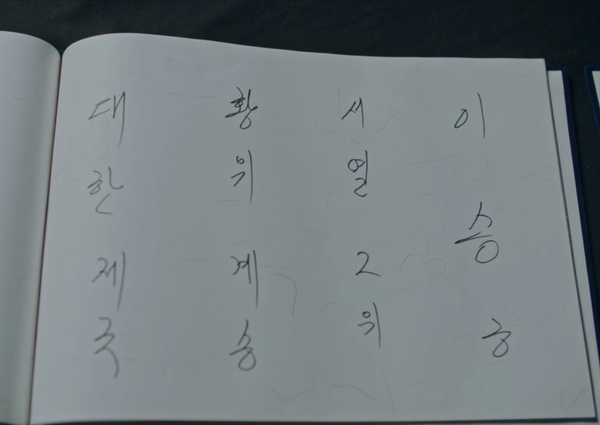 대한제국
황위계승
서열2위
이승